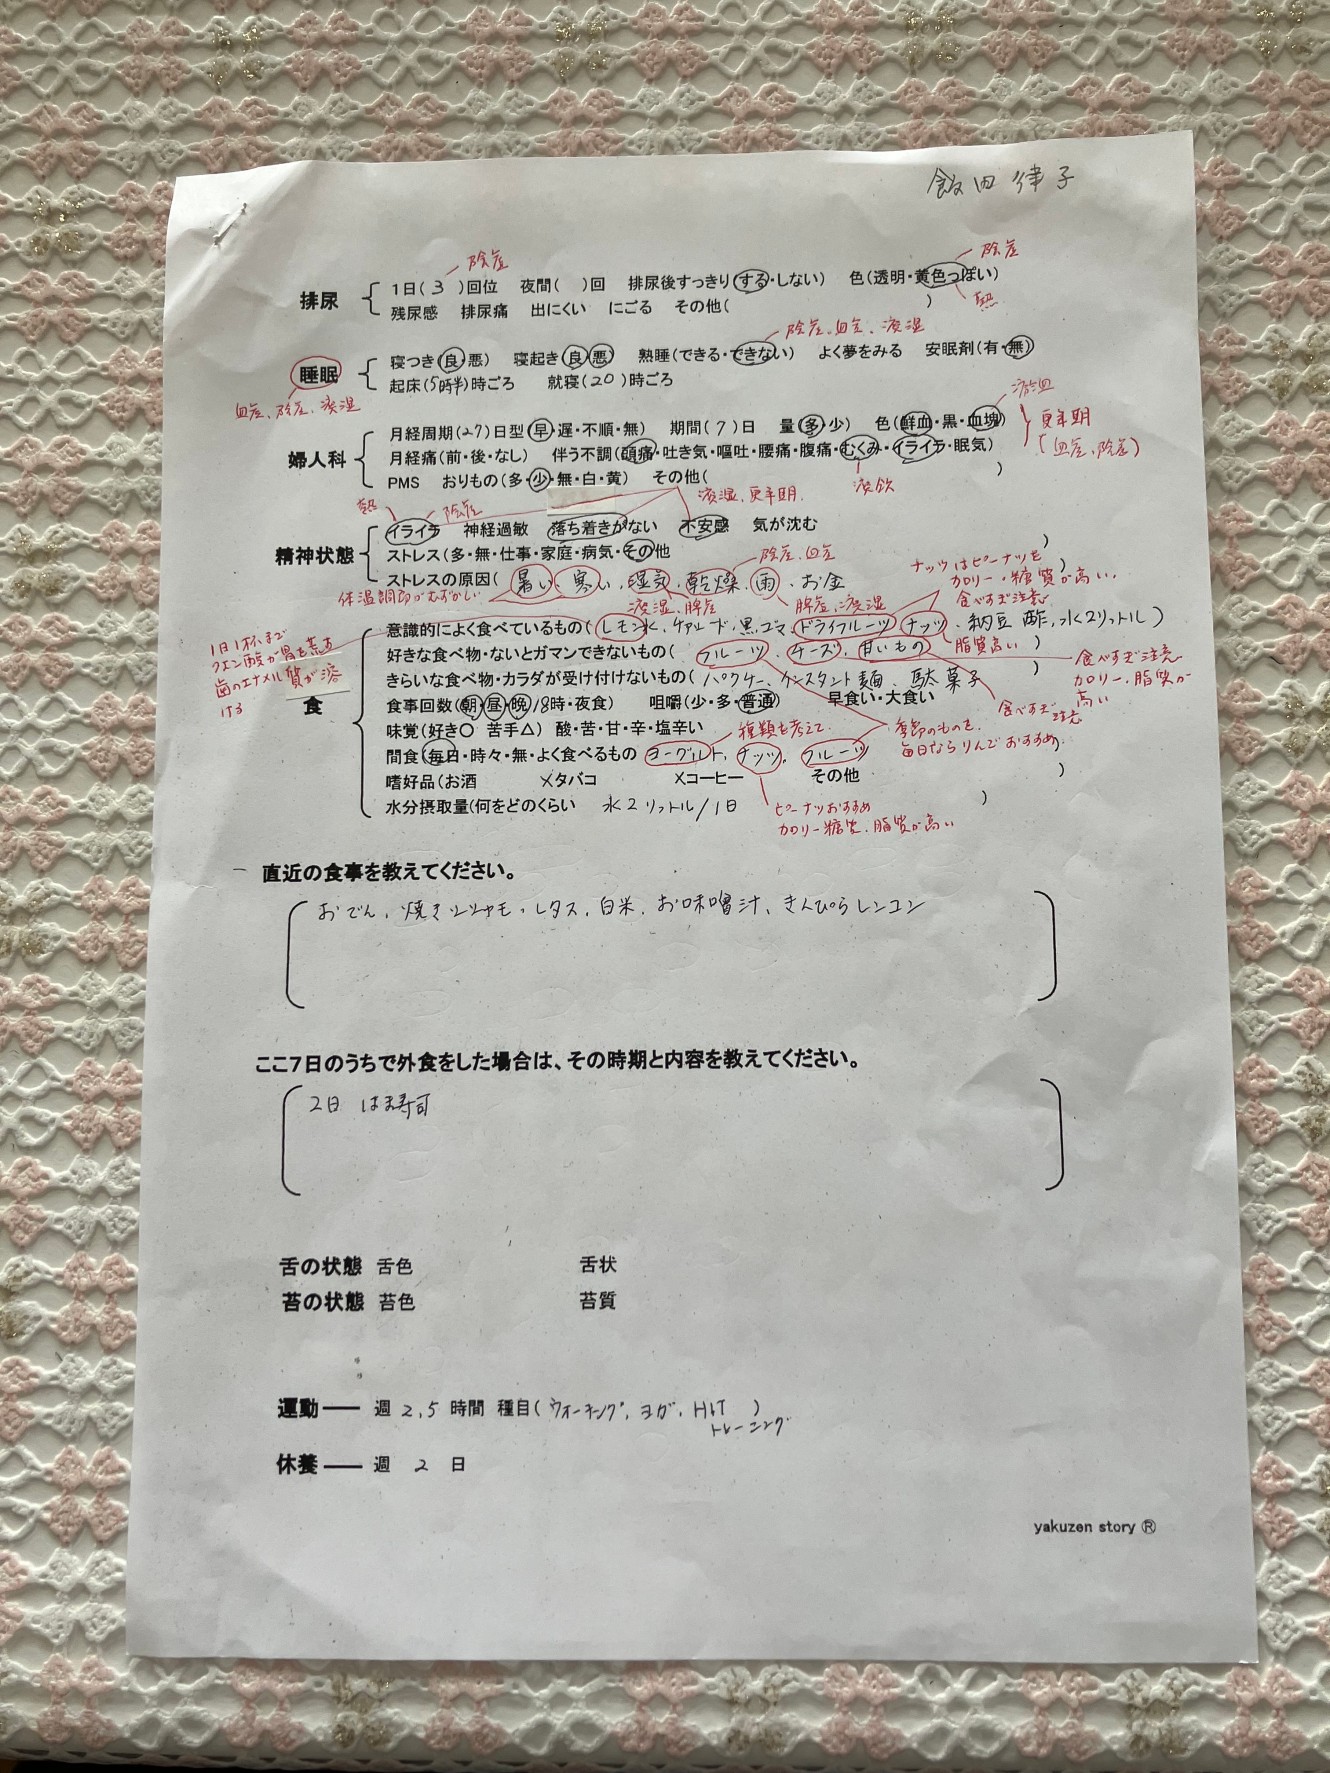 飯田 律子
陰虚 陰虚
排尿 1日(3)回位 夜間( )回 排尿後すっきり(する・しない) 色(透明・黄色っぽい)
残尿感 排尿痛 出にくい にごる その他( ) 熱
陰虚、血虚、痰湿
睡眠 寝つき(良・悪) 寝起き(良・悪) 熟睡(できる・できない) よく夢をみる 安眠剤(有・無)
起床(5時半)時ごろ 就寝(20)時ごろ
血虚、陰虚、痰湿
婦人科 月経周期(27)日型(早・遅・不順・無) 期間(7)日 量(多・少) 色(鮮血・黒・血塊)
更年期
(血虚、陰虚)
月経痛(前・後・なし) 伴う不調(頭痛・吐き気・嘔吐・腰痛・腹痛・むくみ・イライラ・眠気)
PMS おりもの(多・少・無・白・黄) その他( )
痰飲
熱 陰虚 痰湿、更年期
精神状態 イライラ 神経過敏 落ち着きがない 不安感 気が沈む
ストレス(多・無・仕事・家庭・病気・その他 )
陰虚、血虚
ストレスの原因(暑い、寒い、湿気、乾燥、雨、お金 )
体温調節がむずかしい 痰湿、脾虚 脾虚、痰湿
ナッツはピーナッツを
カロリー・糖質が高い、
食べすぎ注意
食 意識的によく食べているもの(レモン水、サラード、黒ゴマ、ドライフルーツ、ナッツ、納豆 酢、水2リットル)
1日1杯まで
クエン酸が胃を荒す
歯のエナメル質が溶
ける
好きな食べ物・ないとガマンできないもの(フルーツ、チーズ、甘いもの )
脂質高い
食べすぎ注意
カロリー、脂質が
高い
きらいな食べ物・カラダが受け付けないもの(パクチー、インスタント麺、駄菓子 )
食事回数(朝・昼・晩/18時・夜食) 咀嚼(少・多・普通) 早食い・大食い
食べすぎ注意
味覚(好き〇 苦手△) 酸・苦・甘・辛・塩辛い
種類を考えて
季節のものを
毎日ならりんごおすすめ
間食(毎日・時々・無・よく食べるもの ヨーグルト、ナッツ、フルーツ )
嗜好品(お酒 ×タバコ ×コーヒー その他 )
水分摂取量(何をどのくらい 水2リットル/1日 )
ピーナツおすすめ
カロリー糖質、脂質が高い
直近の食事を教えてください。
おでん、焼きシシャモ、レタス、白米、お味噌汁、きんぴらレンコン
ここ7日のうちで外食をした場合は、その時期と内容を教えてください。
2日 はま寿司
舌の状態 舌色 舌状
苔の状態 苔色 苔質
運動―― 週 2,5 時間 種目(ウォーキング、ヨガ、HIIT )
トレーニング
休養―― 週 2 日
yakuzen story Ⓡ